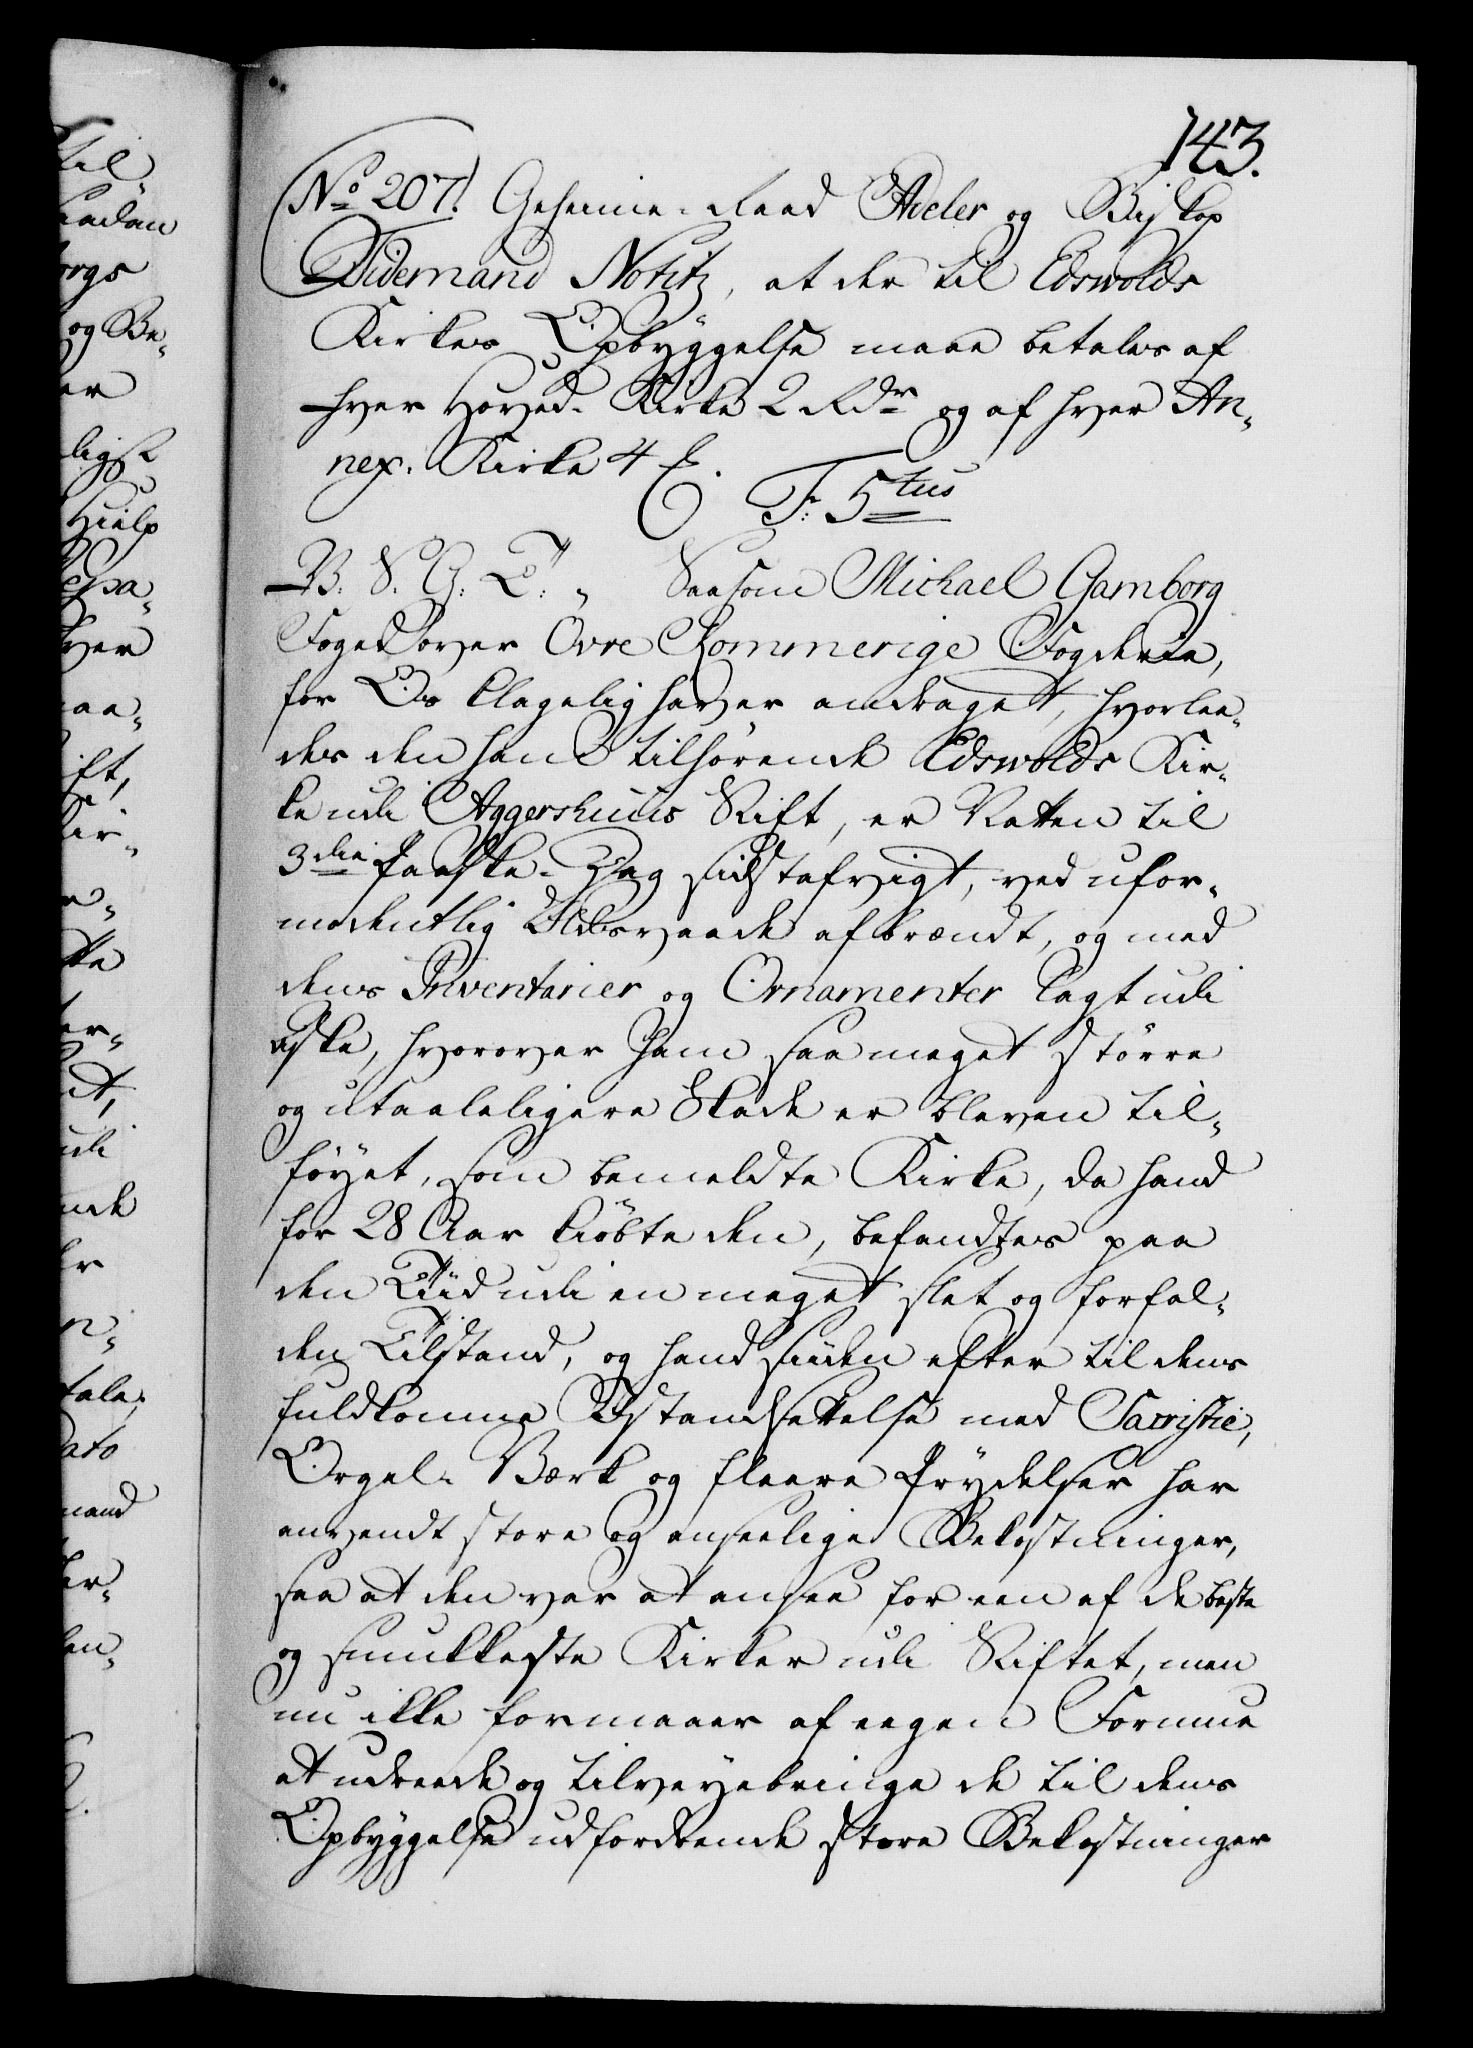 143.
No 207. Geheime-Raad Adeler og Biskop
Tidemand Notitz, at der til Edswolds
Kirkes Opbyggelse maae betales af
hver Hoved-Kirke 2 Rdr og af hver An-
nex-Kirke 4 ß. F: 5tus
B. V. G. T: Saasom Michael Gamborg
Foget over Övre Rommerige Fogderie,
for Os klagelig haver andraget, hvorlee-
des den ham tilhørende Edswolds Kir-
ke udi Aggershuus Stift, er Natten til
3die Paaske-Dag sidst afvigt, ved ufor-
modentlig Ildsvaade afbrændt, og med
dens Inventarier og Ornamenter lagt udi
aske, hvorover ham saa meget større
og utaaleligere Skade er bleven til-
føyet, som bemeldte Kirke, da hand
for 28 Aar kiöbte den, befandtes paa
den Tiid udi en meget slet og forfal-
den Tilstand, og hand siiden efter til dens
fuldkomne Istandsettelse med Sacristie,
Orgel-Værk og fleere Prydelser har
anvendt store og anseelige Bekostninger,
saa at den var at ansee for een af de beste
og smukkeste Kirker udi Stiftet, men
nu ikke formaaer af eegen Formue
at udreede og tilveyebringe de til dens
Opbyggelse udfordrende store Bekostninger
til
saadan
orgs
og Be-
er
ligst
Hielp
epa-
hver
aa-
ift,
Kir-
tte
ter-
udi
tale,
Dato
mand